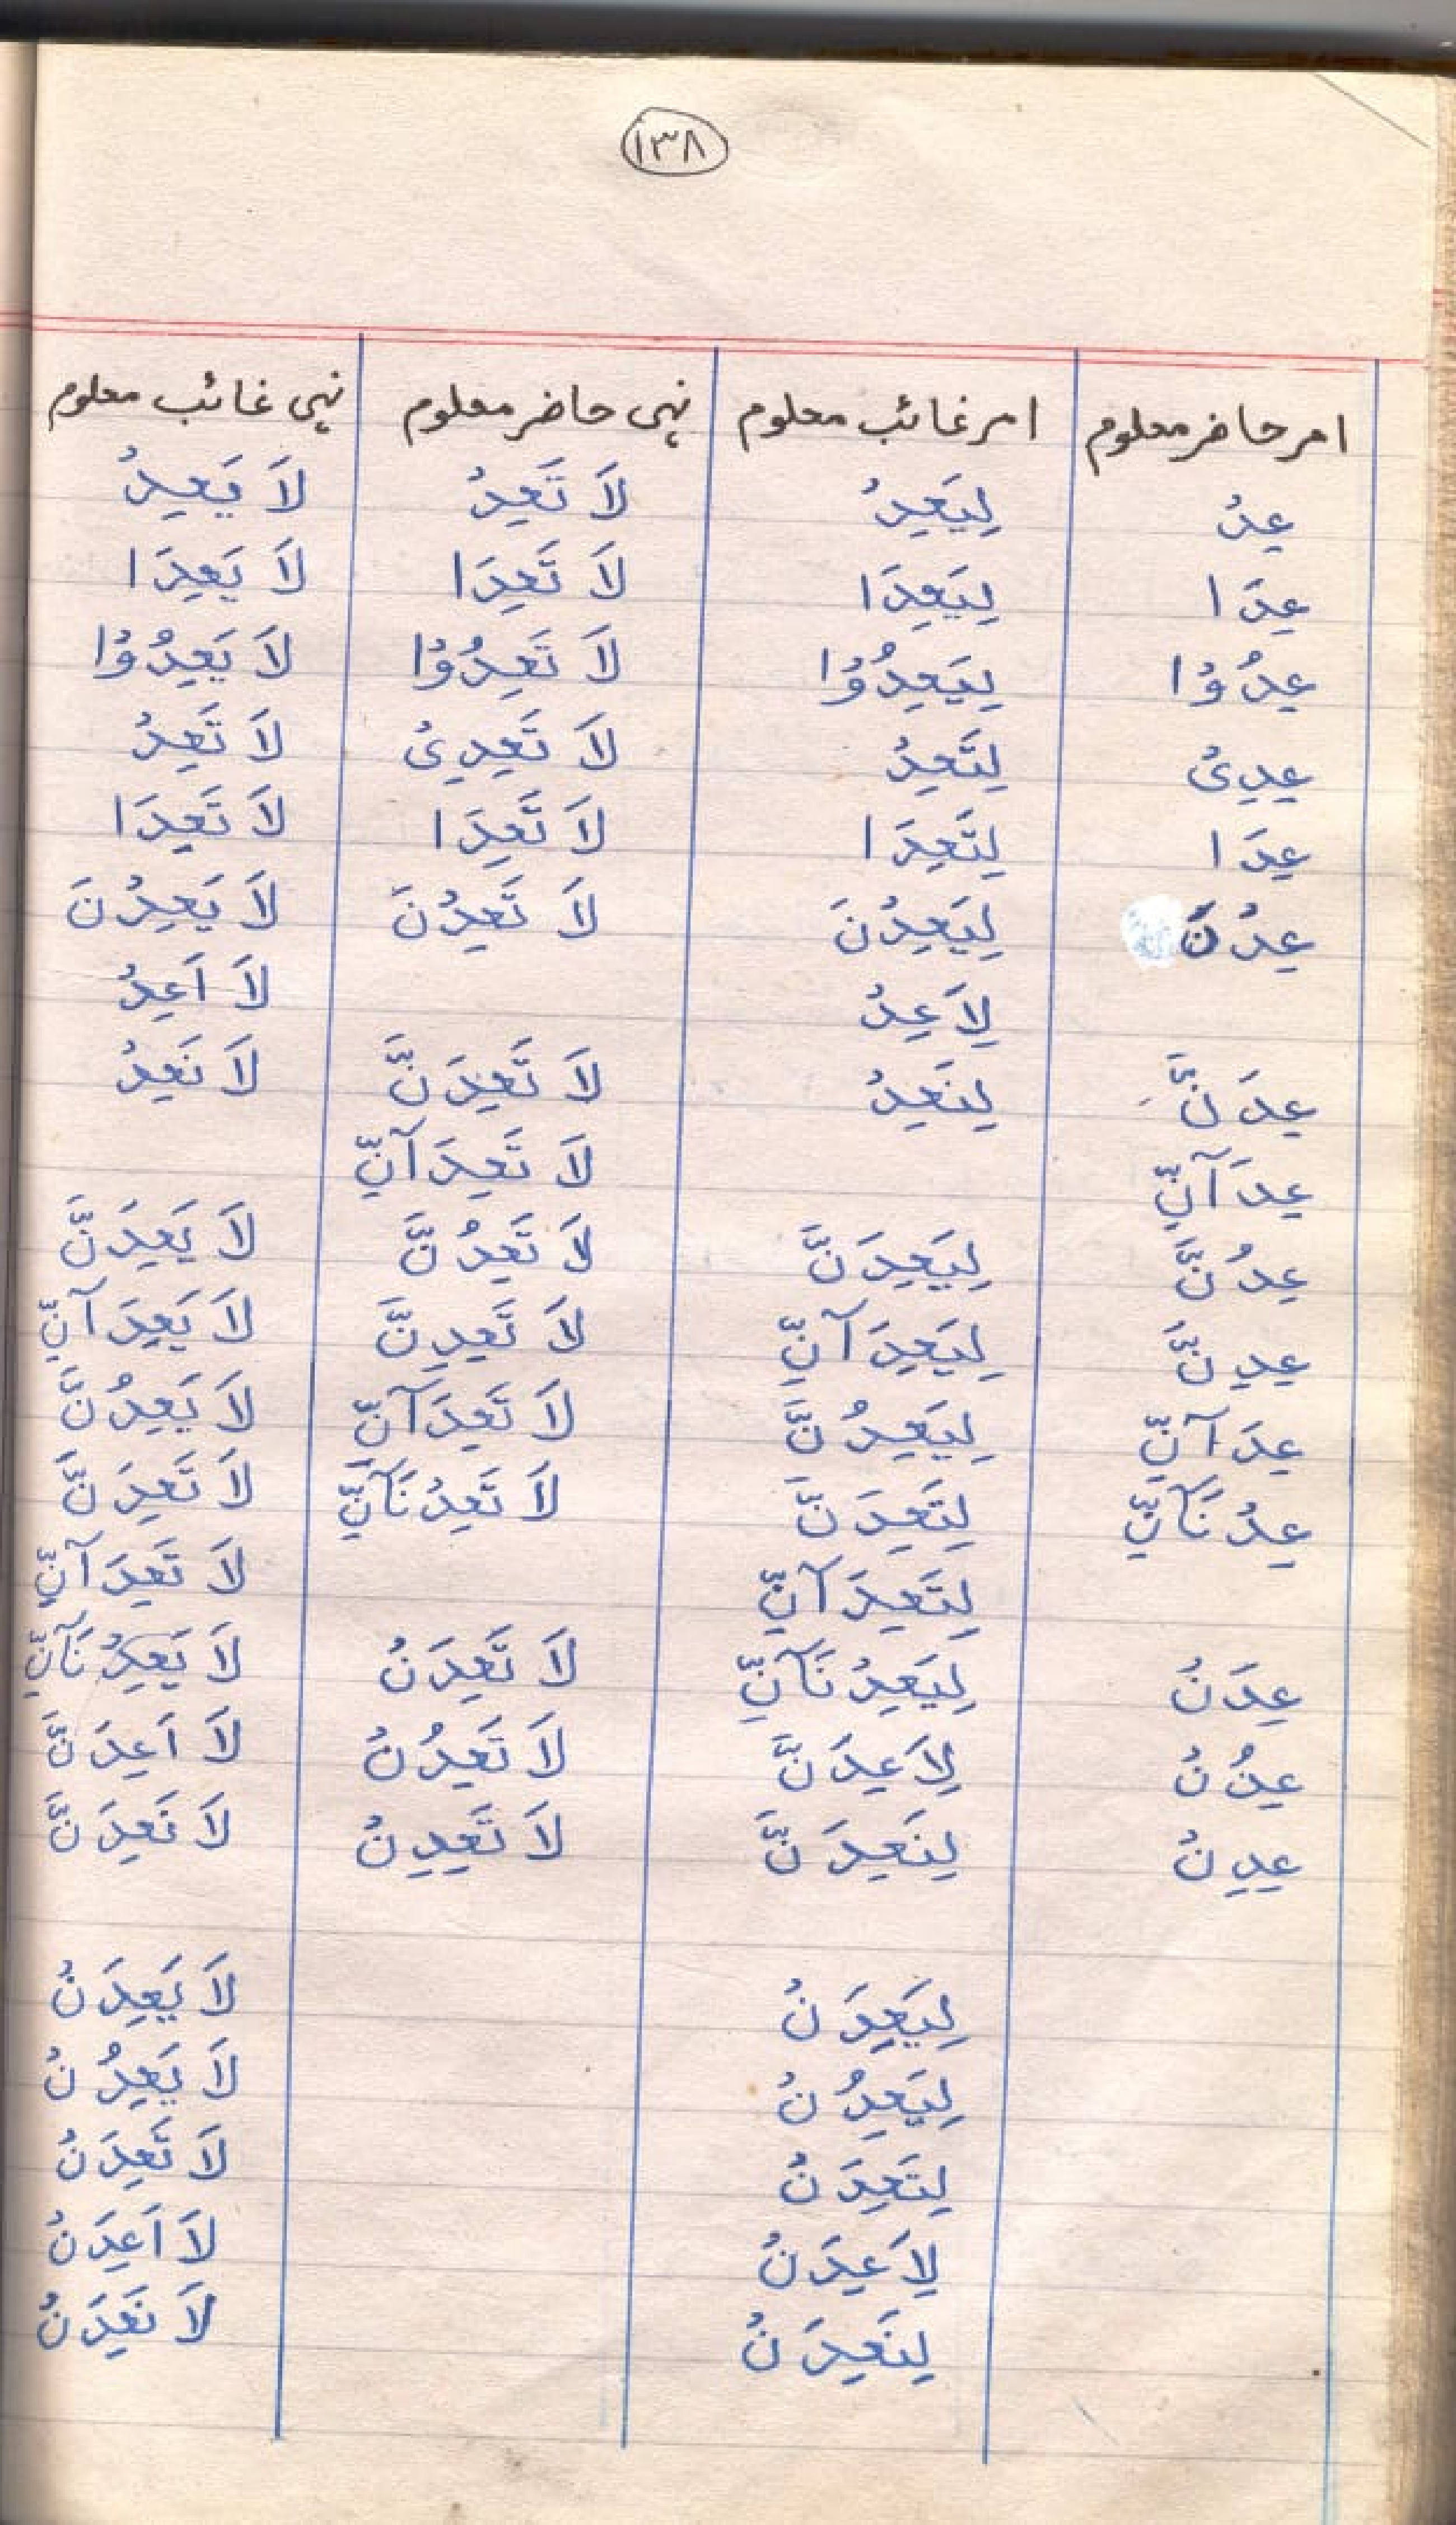 ١٣٨
امر حاضر معلوم امر غائب معلوم نہی حاضر معلوم نہی غائب معلوم
عِدْ لِيَعِدْ لَا تَعِدْ لَا يَعِدْ
عِدَا لِيَعِدَا لَا تَعِدَا لَا يَعِدَا
عِدُوْا لِيَعِدُوْا لَا تَعِدُوْا لَا يَعِدُوْا
عِدِىْ لِتَعِدْ لَا تَعِدِىْ لَا تَعِدْ
عِدَا لِتَعِدَا لَا تَعِدَا لَا تَعِدَا
عِدْنَ لِيَعِدْنَ لَا تَعِدْنَ لَا يَعِدْنَ
لِاَعِدْ لَا اَعِدْ
عِدَنَّ لِنَعِدْ لَا تَعِدَنَّ لَا نَعِدْ
عِدَآنِّ لَا تَعِدَآنِّ
عِدُنَّ لِيَعِدَنَّ لَا تَعِدُنَّ لَا يَعِدَنَّ
عِدِنَّ لِيَعِدَآنِّ لَا تَعِدِنَّ لَا يَعِدَآنِّ
عِدَآنِّ لِيَعِدُنَّ لَا تَعِدَآنِّ لَا يَعِدُنَّ
عِدْنَآنِّ لِتَعِدَنَّ لَا تَعِدْنَآنِّ لَا تَعِدَنَّ
لِتَعِدَآنِّ لَا تَعِدَآنِّ
عِدَنْ لِيَعِدْنَآنِّ لَا تَعِدَنْ لَا يَعِدْنَآنِّ
عِدُنْ لِاَعِدَنَّ لَا تَعِدُنْ لَا اَعِدَنَّ
عِدِنْ لِنَعِدَنَّ لَا تَعِدِنْ لَا نَعِدَنَّ
لِيَعِدَنْ لَا يَعِدَنْ
لِيَعِدُنْ لَا يَعِدُنْ
لِتَعِدَنْ لَا تَعِدَنْ
لِاَعِدَنْ لَا اَعِدَنْ
لِنَعِدَنْ لَا نَعِدَنْ